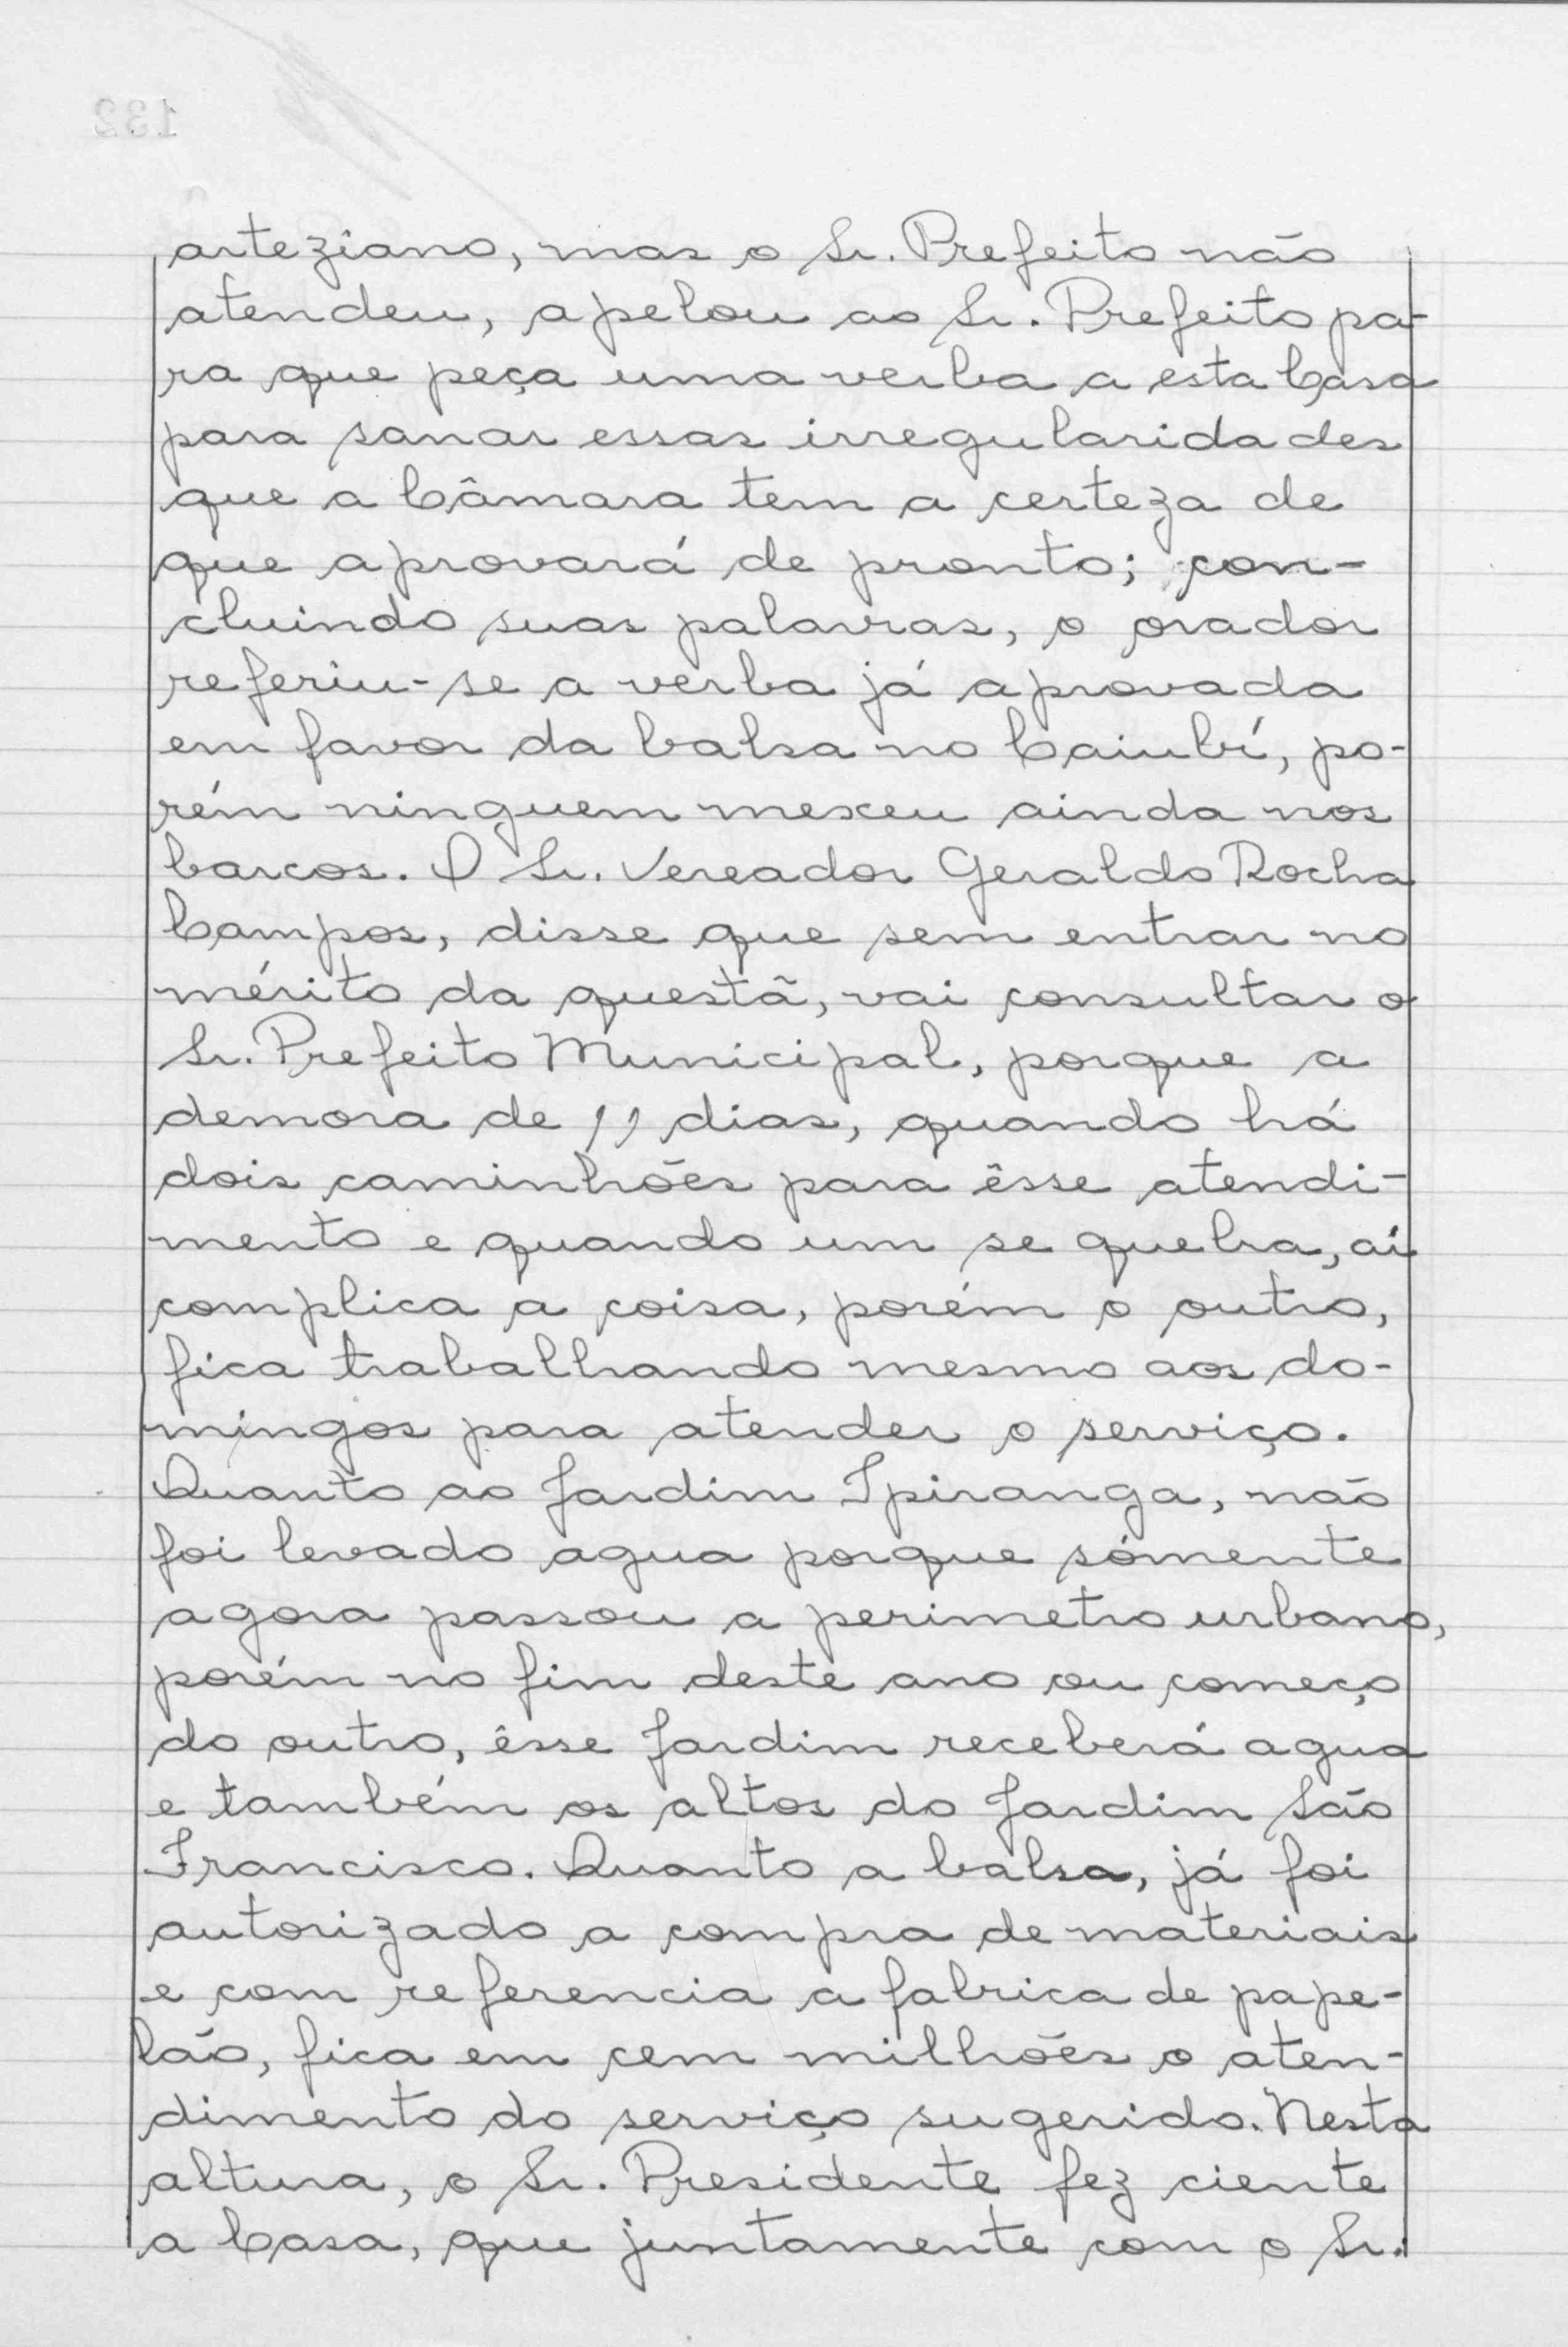 132
arteziano, mas o Sr. Prefeito não
atendeu, apelou ao Sr. Prefeito pa-
ra que peça uma verba a esta Casa
para sanar essas irregularidades
que a Câmara tem a certeza de
que aprovará de pronto; con-
cluindo suas palavras, o orador
referiu-se a verba já aprovada
em favor da balsa no Caiubí, po-
rém ninguem mexeu ainda nos
barcos. O Sr. Vereador Geraldo Rocha
Campos, disse que sem entrar no
mérito da questã, vai consultar o
Sr. Prefeito Municipal, porque a
demora de 11 dias, quando há
dois caminhões para êsse atendi-
mento e quando um se quebra, aí
complica a coisa, porém o outro,
fica trabalhando mesmo aos do-
mingos para atender o serviço.
Quanto ao Jardim Ipiranga, não
foi levado agua porque sómente
agora passou a perimetro urbano,
porém no fim deste ano ou começo
do outro, êsse Jardim receberá agua
e também os altos do Jardim São
Francisco. Quanto a balsa, já foi
autorizado a compra de materiais
e com referencia a fabrica de pape-
lão, fica em cem milhões o aten-
dimento do serviço sugerido. Nesta
altura, o Sr. Presidente fez ciente
a Casa, que juntamente com o Sr.